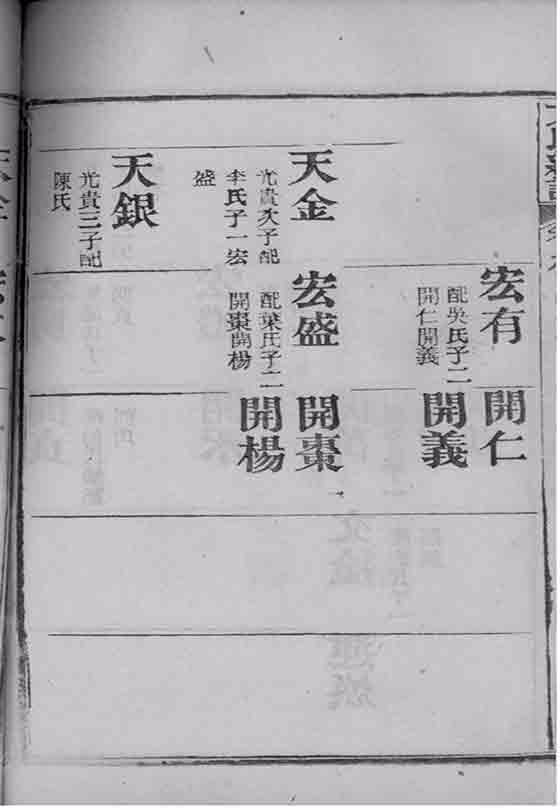 宏有
配吳氏子二
開仁開義
開仁
開義
天金
光貴次子配
李氏子一宏
盛
宏盛
配葉氏子二
開棗開楊
開棗
開楊
天銀
光貴三子配
陳氏